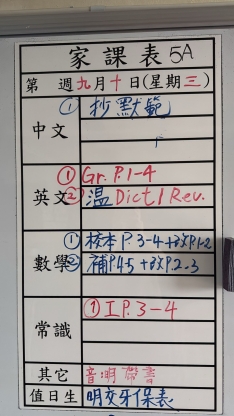 家課表 5A
第 週九月十日(星期三)
中文
① 抄默範
英文
① Gr. P.1-4
② 溫Dict 1 Rev.
數學
① 校本P.3-4+改P.1-2
② 補P45+改P.2.3
常識
① I P.3-4
其它
音:明帶書
值日生
明交牙保表